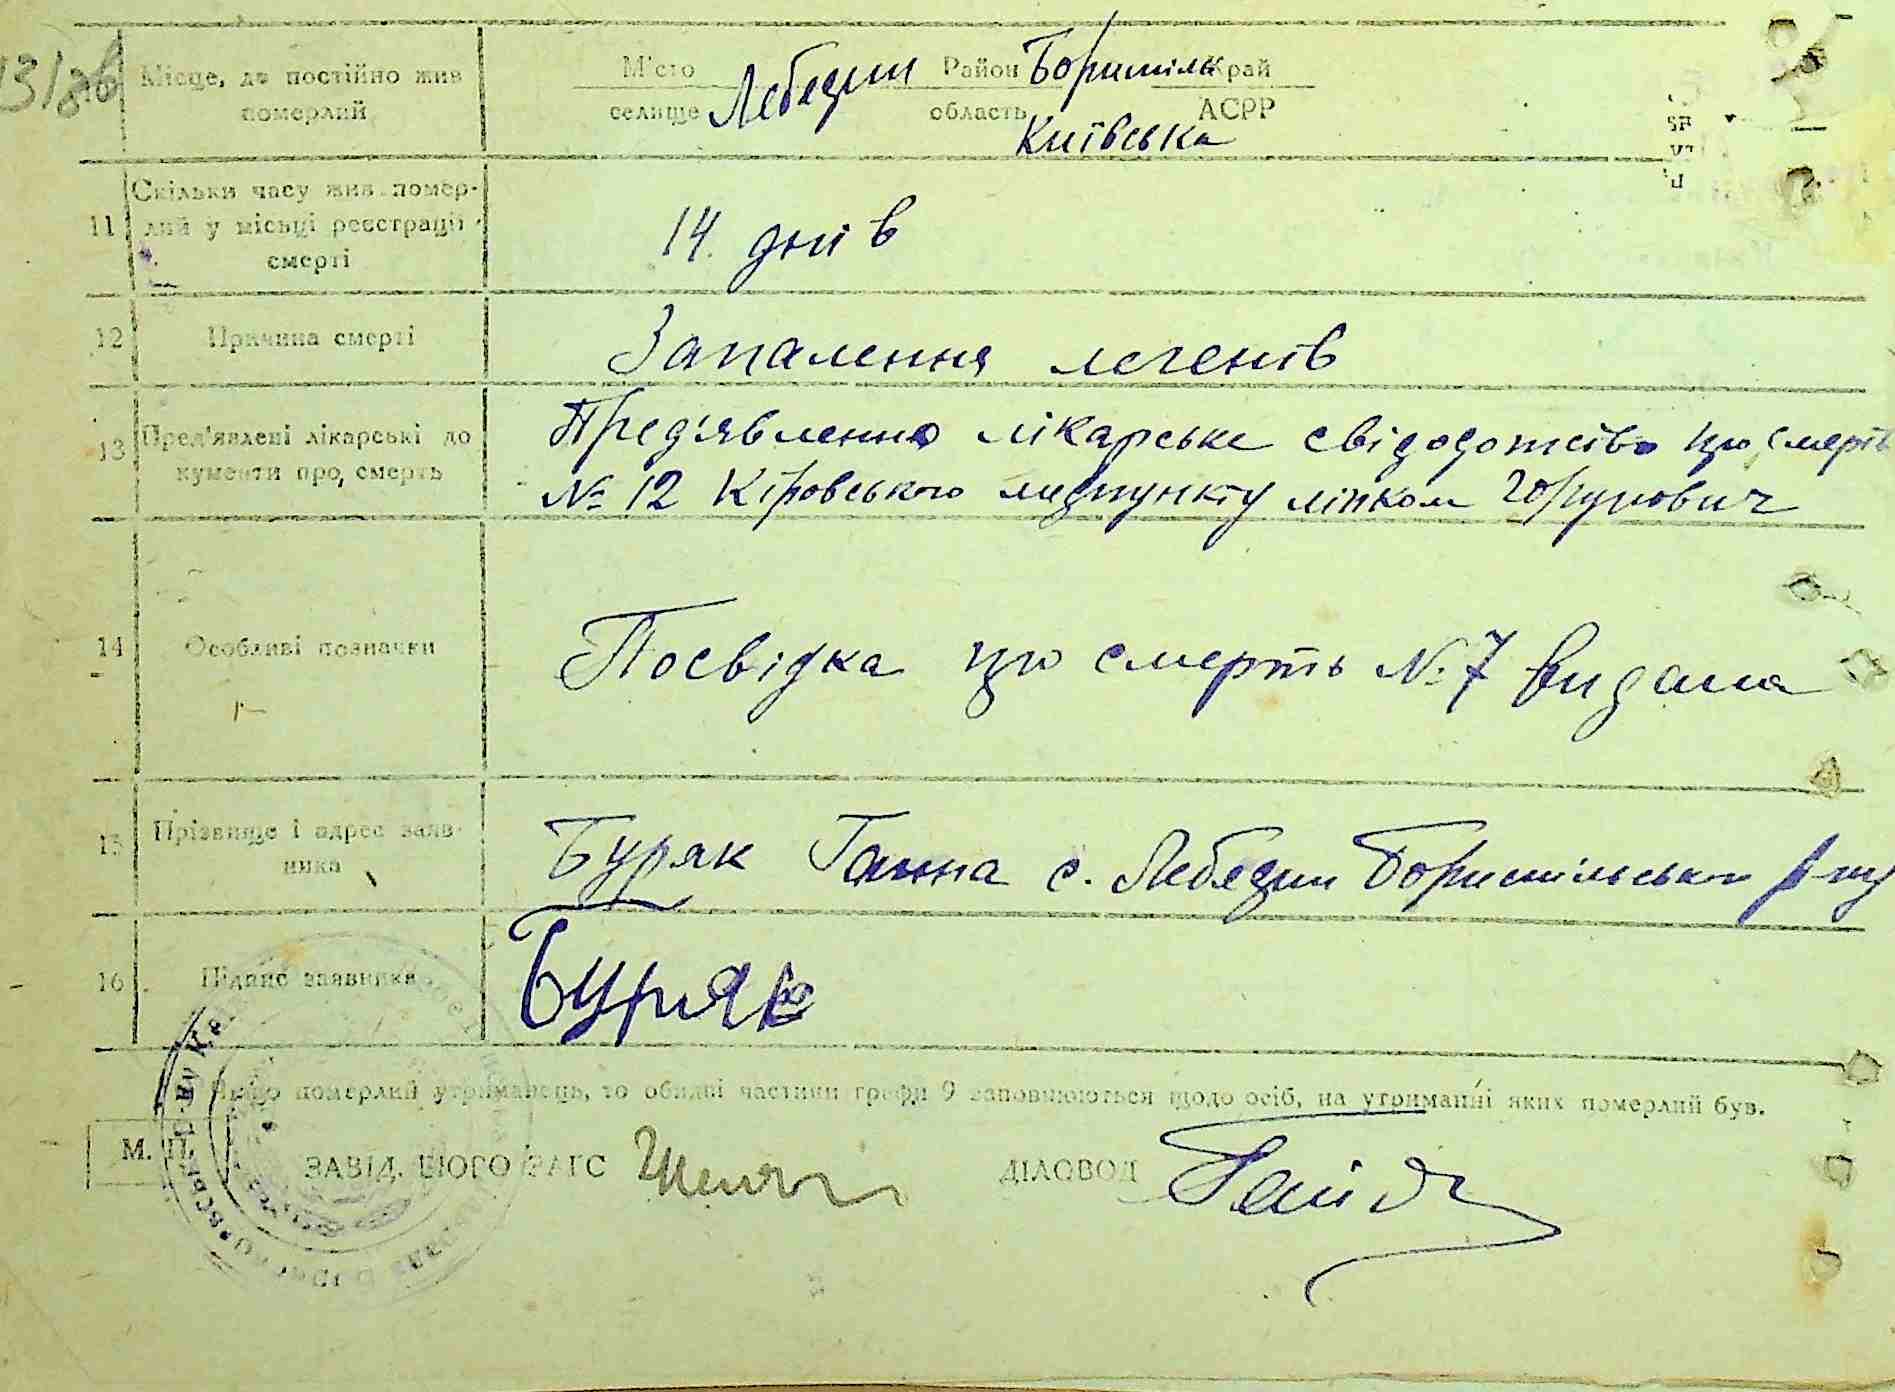 13/зв
Місце, де постійно жив
померлий
М'сто Лебедин Район Бориспіль Край
селище область АСРР
Київська
11 Скільки часу жив помер-
лий у місці реєстрації
смерті
14 днів
12 Причина смерті Запалення легенів
13 Пред'явлені лікарські до
кументи про смерть
Предявленно лікарське свідодотство про смерть
№ 12 Кіровського медпункту ліпком
14 Особливі позначки Посвідка про смерть № 7 видана
15 Прізвище і адрес заяв-
ника
Буряк Ганна с. Лебедин Бориспільського р-ну
16 Підпис заявника Буряк
Якщо померлий утриманець, то обидві частини графи 9 заповнюються щодо осіб, на утриманні яких померлий був.
М. П. ЗАВІД. БЮРО ЗАГС ДІЛОВОД